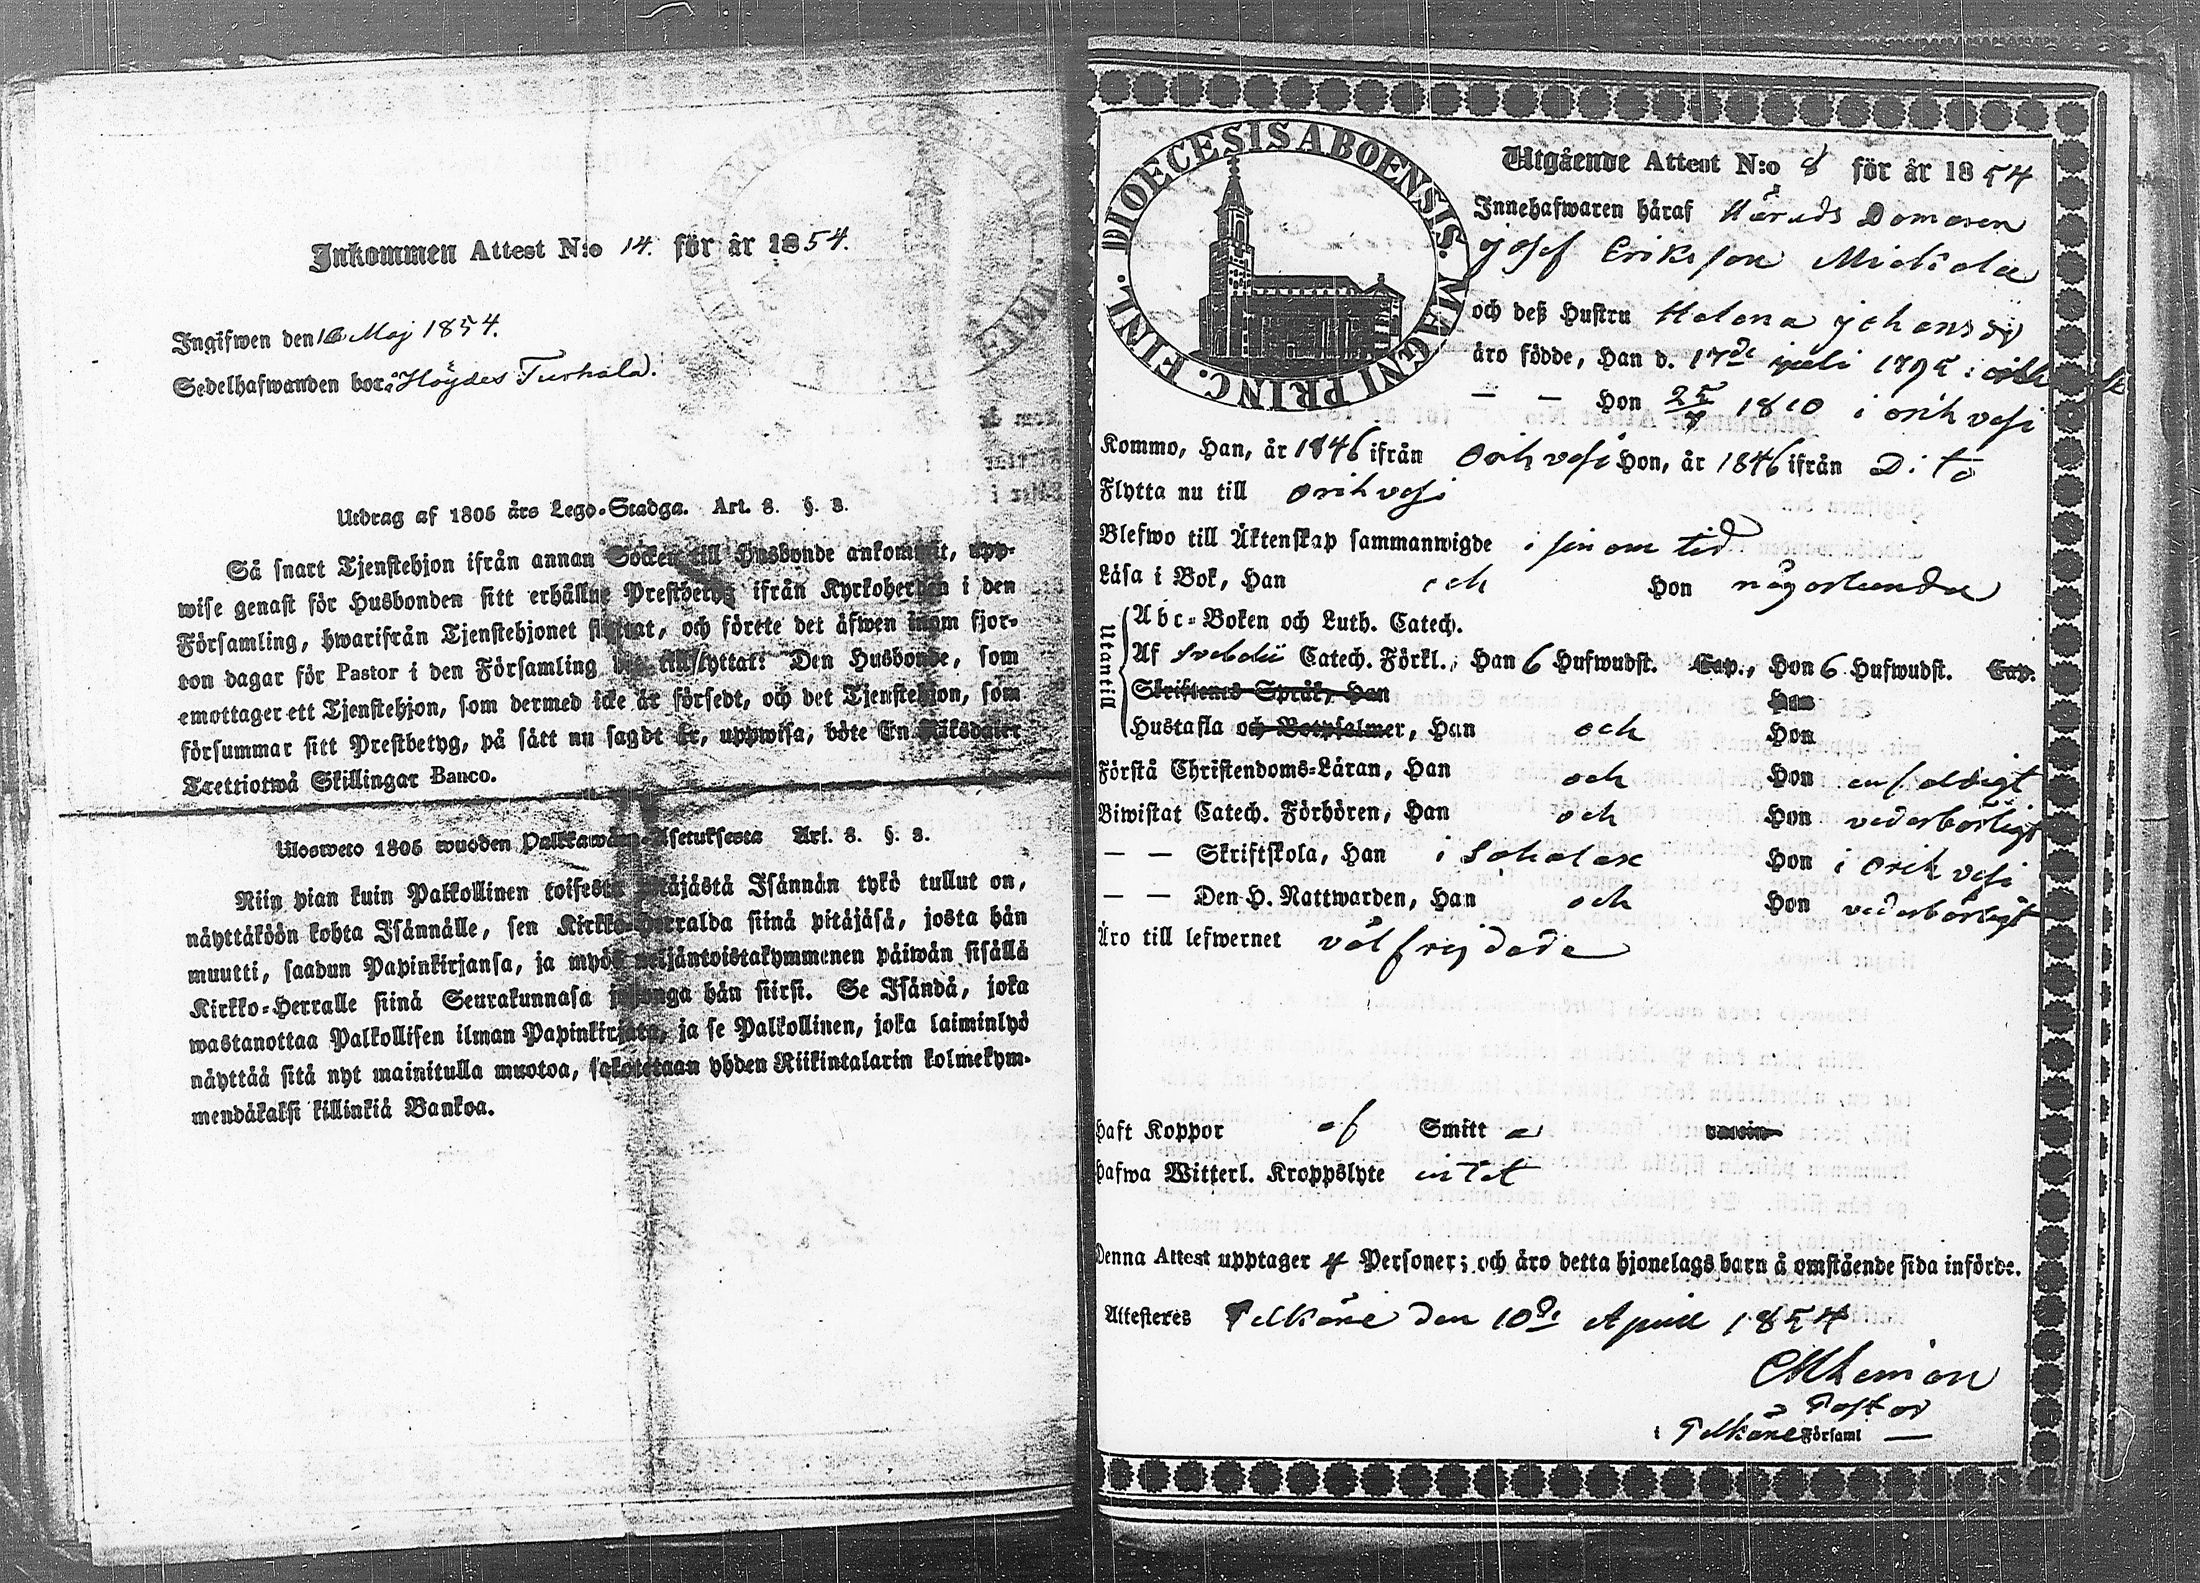 Inkommen Attest N:o 14. för år 1854.
Ingifwen den 16 Maj 1854.
Sedelhafwanden bor: Höydes Turkala.
Utdrag af 1805 års Lego-Stadga. Art. 8. §. 3.
Så snart Tjenstehjon ifrån annan Socken till Husbonde ankommit, upp-
wise genast för Husbonden sitt erhållne Prestbetyg ifrån Kyrkoherden i den
Församling, hwarifrån Tjenstehjonet flyttat, och förete det äfwen inom fjor-
ton dagar för Pastor i den Församling det tillflyttat: Den Husbonde, som
emottager ett Tjenstehjon, som dermed icke är försedt, och det Tjenstehjon, som
försummar sitt Prestbetyg, på sätt nu sagdt är, uppwisa, böte En Riksdaler
Trettiotwå Skillingar Banco.
Ulosweto 1805 wuoden Palkkawäen-Asetuksesta Art. 8. §. 3.
Niin pian kuin Palkollinen toisesta pitäjästä Isännän tykö tullut on,
näyttäköön kohta Isännälle, sen Kirkko-Herralda siinä pitäjäsä, josta hän
muutti, saadun Papinkirjansa, ja myös neljäntoistakymmenen päiwän sisällä
Kirkko-Herralle siinä Seurakunnasa johonga hän siirsi. Se Isändä, joka
wastanottaa Palkollisen ilman Papinkirjata, ja se Palkollinen, joka laiminlyö
näyttää sitä nyt mainitulla muotoa, sakotetaan yhden Riikintalarin kolmekym-
mendäkaksi killinkiä Bankoa.
DIOECESIS ABOENSIS. MAGNI PRINC. FINL.
Utgående Attest N:o 8 för år 1854
Innehafwaren häraf Härads Domaren
Josef Eriksson Mickola
och deß Hustru Helena Johansdr
äro födde, Han d. 17de juli 1795 i orih
— — Hon 25/7 1810 i orihvesi
Kommo, Han, år 1846 ifrån Orihvesi Hon, år 1846 ifrån Dito
Flytta nu till orihvesi
Blefwo till Äktenskap sammanwigde i sin om tid
Läsa i Bok, Han och Hon någorlunda
Utantill
Abc-Boken och Luth. Catech.
Af Svebelii Catech. Förkl., Han 6 Hufwudst. Cap., Hon 6 Hufwudst. Cap.
Skriftenes Språk, Han Hon
Hustafla och Botpsalmer, Han och Hon
Förstå Christendoms-Läran, Han och Hon enfaldigt
Biwistat Catech. Förhören, Han och Hon vederbörligt
— — Skriftskola, Han i Sahalax Hon i orihvesi
— — Den H. Nattwarden, Han och Hon vederbörligt
Äro till lefwernet välfrejdade
Haft Koppor af Smitt a
Hafwa Witterl. Kroppslyte intet
Denna Attest upptager 4 Personer; och äro detta hjonelags barn å omstående sida införde.
Attesteres Pelkäne den 10de April 1854
Pastor
i Pelkäne Församl —